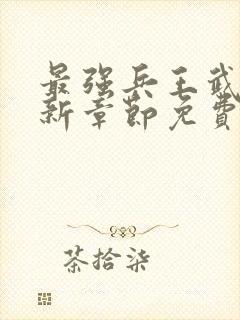 最强兵王武
新章节免费
茶拾柒